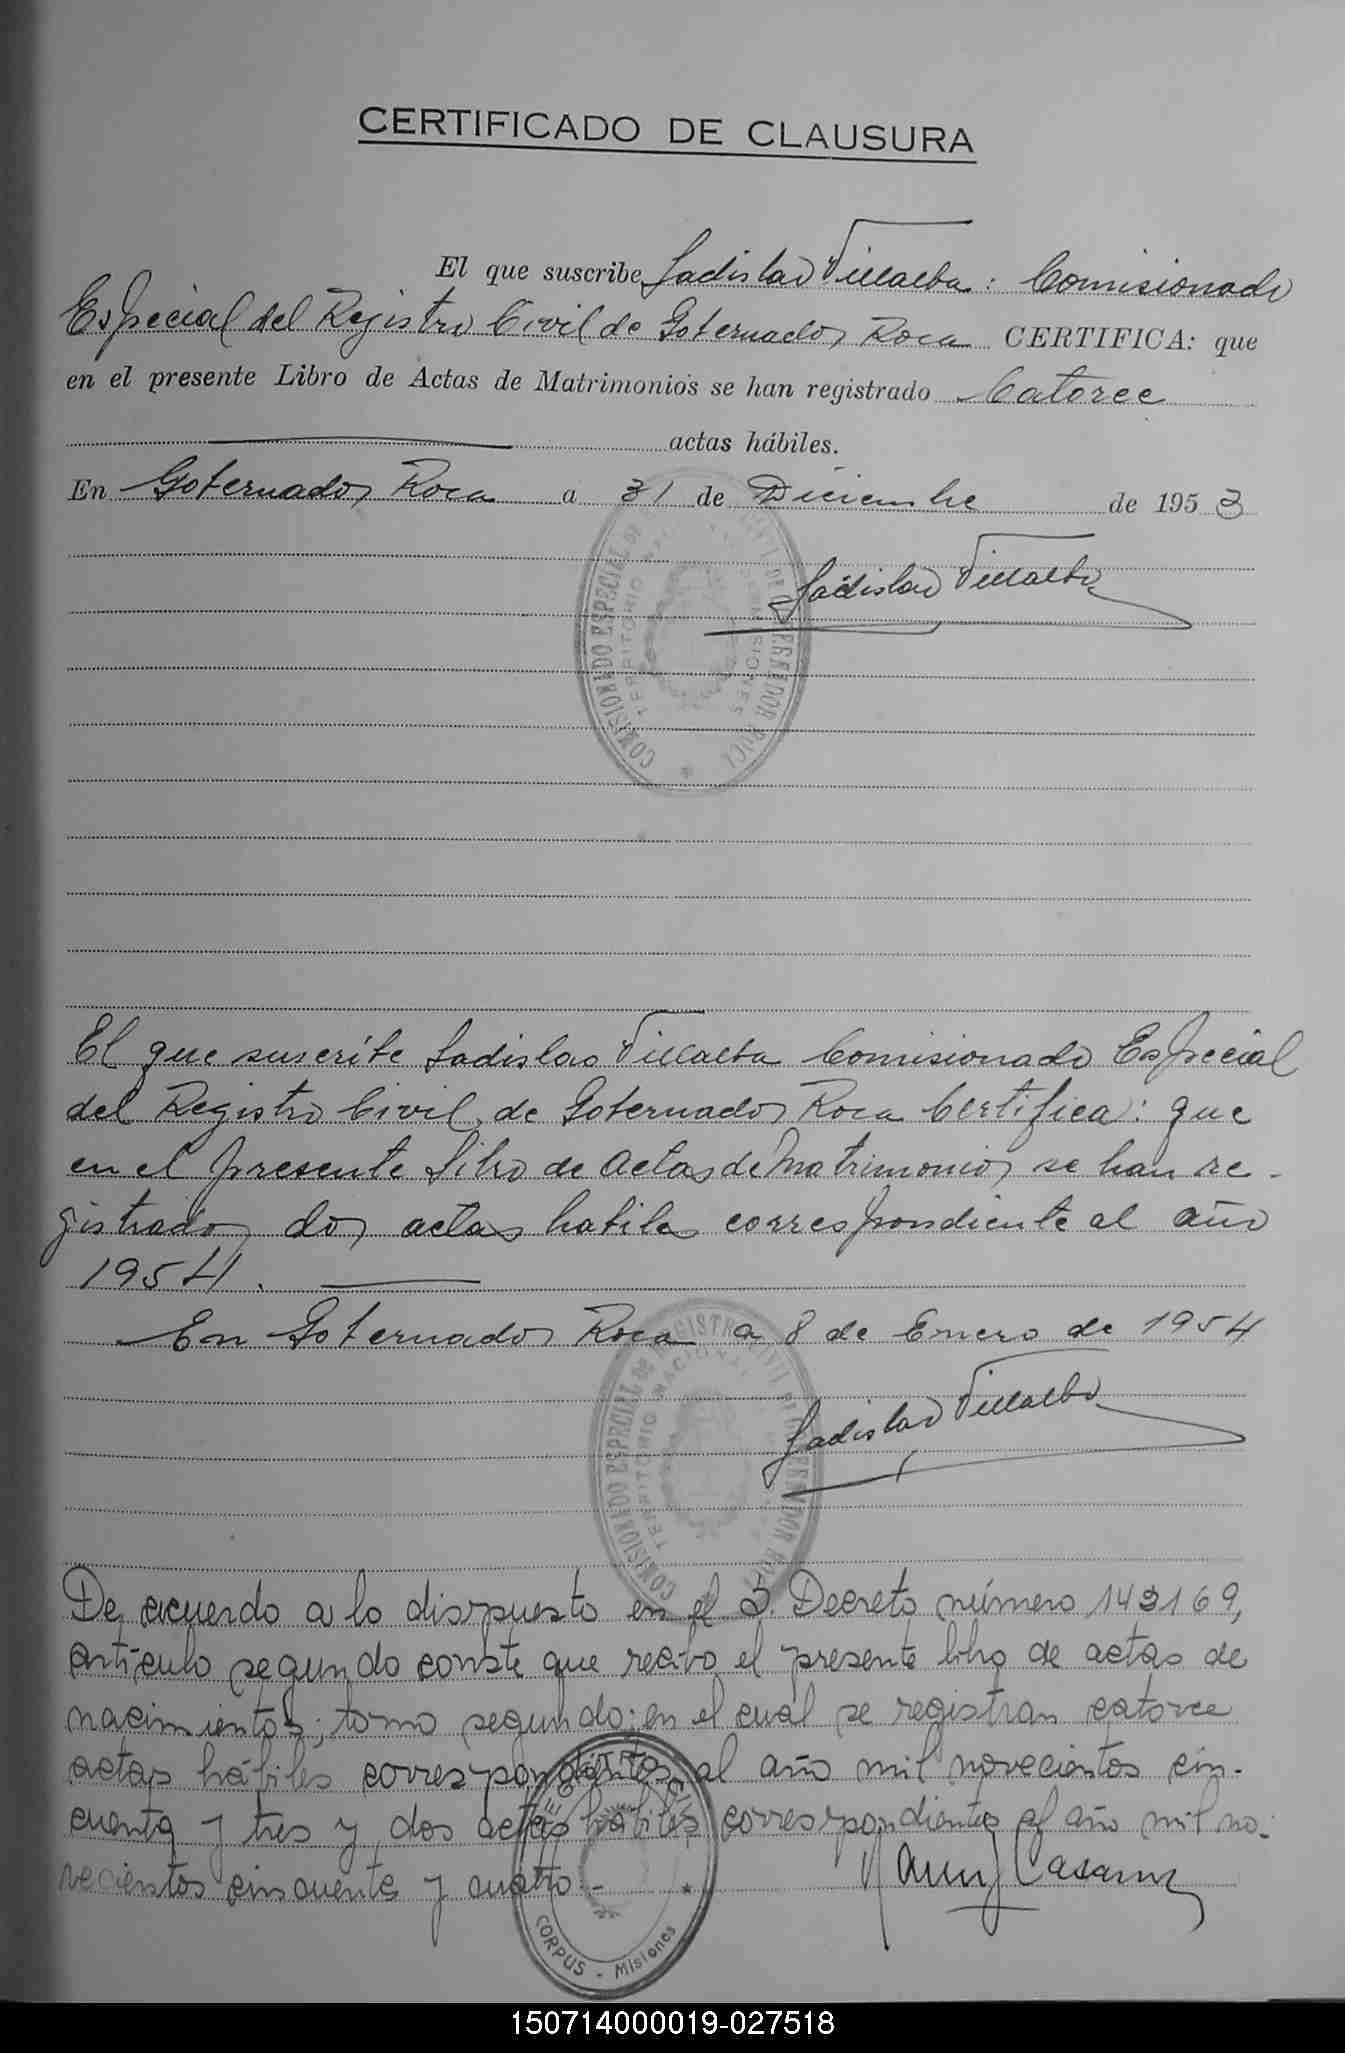 CERTIFICADO DE CLAUSURA
El que suscribe Ladislao Villalba: Comisionado
Especial del Registro Civil de Gobernador Roca CERTIFICA: que
en el presente Libro de Actas de Matrimonios se han registrado Catorce
actas hábiles.
En Gobernador Roca a 31 de Diciembre de 1953
Ladislao Villalba
COMISIONADO ESPECIAL DE GOBERNADOR ROCA
TERRITORIO MISIONES
El que suscribe Ladislao Villalba Comisionado Especial
del Registro Civil de Gobernador Roca Certifica: que
en el presente Libro de Actas de Matrimonios se han re-
gistrados dos actas habiles correspondiente al año
1954.
En Gobernador Roca a 8 de Enero de 1954
Ladislao Villalba
COMISIONADO ESPECIAL DE REGISTRO CIVIL DE GOBERNADOR ROCA
TERRITORIO NACIONAL
De acuerdo a lo dispuesto en el S. Decreto número 143169,
artículo segundo conste que recibo el presente libro de actas de
nacimientos; tomo segundo; en el cual se registran catorce
actas hábiles correspondientes al año mil novecientos cin-
cuenta y tres y dos actas hábiles correspondientes al año mil no-
vecientos cincuenta y cuatro.-
REGISTRO CIVIL
CORPUS - Misiones
150714000019-027518